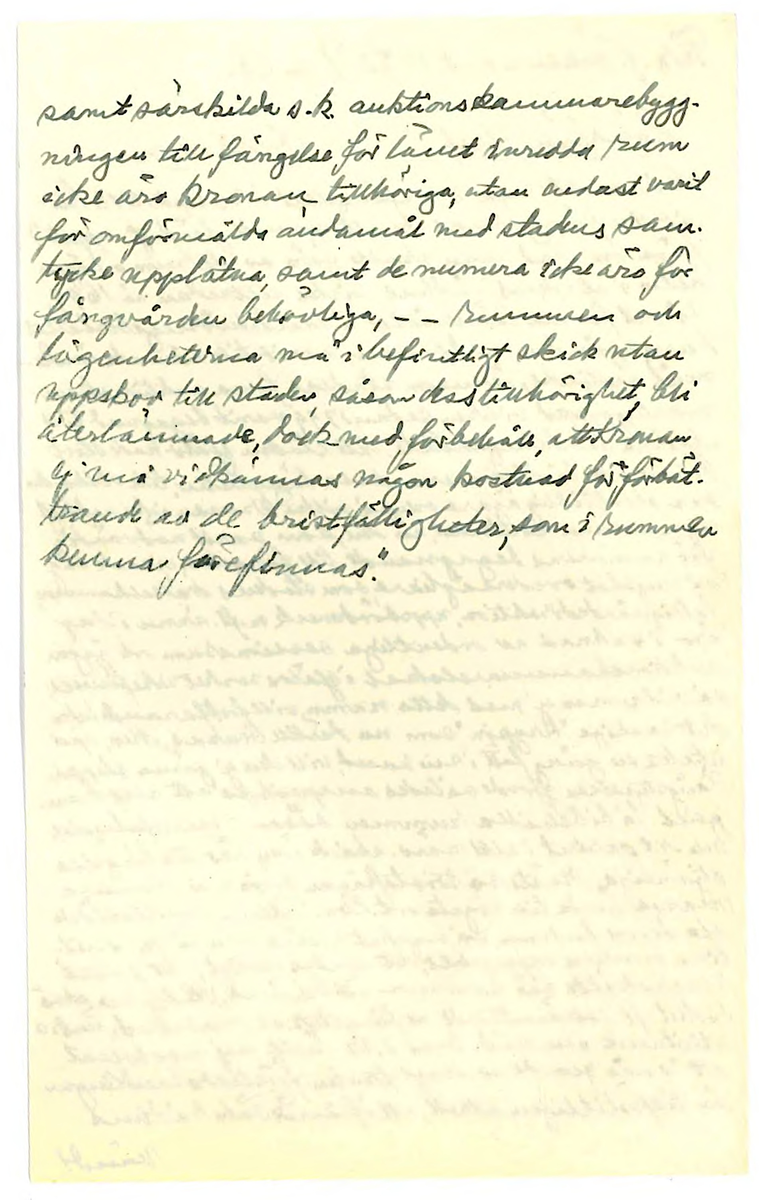 samt särskilda s.k. auktionskammarebygg-
ningen till fängelse för länet inredda rum
icke äro kronan tillhöriga, utan endast varit
för omförmälda ändamål med stadens sam-
tycke upplåtna, samt de numera icke äro för
fångvården behövliga, - - rummen och
lägenheterna må i befintligt skick utan
uppskov till staden, såsom dess tillhörighet, bli
återlämnade, dock med förbehåll, att kronan
ej må vidkännas någon kostnad för förbät-
trande av de bristfälligheter, som i rummen
kunna förefinnas."